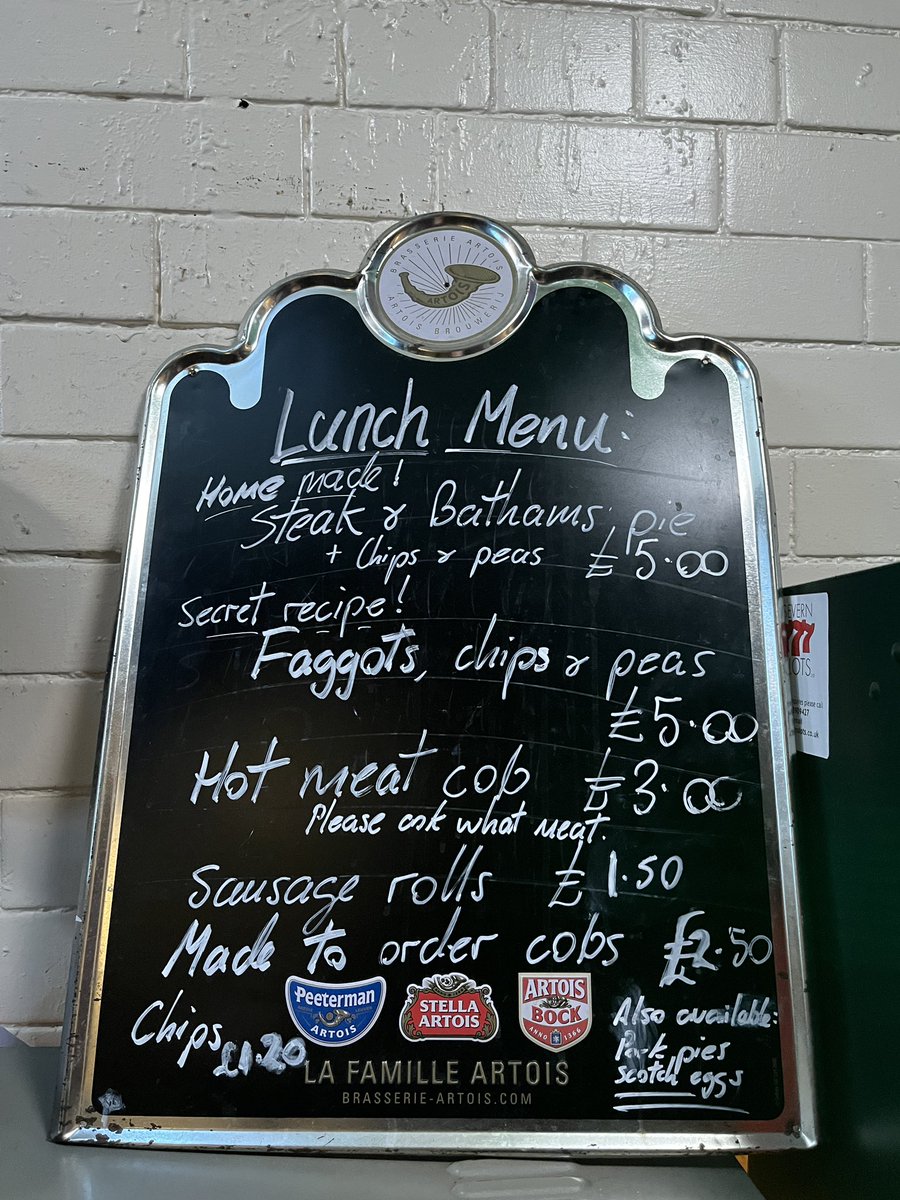 BRASSERIE ARTOIS
ARTOIS
ARTOIS BROUWERIJ
Lunch Menu:
Home made!
Steak & Bathams pie
+ Chips & peas £5.00
Secret recipe!
Faggots, chips & peas
£5.00
Hot meat cob £3.00
Please ask what meat.
Sausage rolls £1.50
Made to order cobs £2.50
Chips £1.20
Also available:
Pork pies
scotch eggs
Peeterman
ARTOIS
STELLA
ARTOIS
ARTOIS
BOCK
ANNO 1366
LA FAMILLE ARTOIS
BRASSERIE-ARTOIS.COM
SEVERN
777
please call